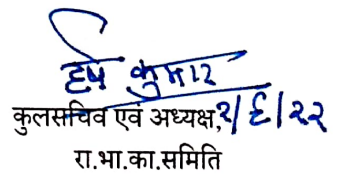 हर्ष कुमार
कुलसचिव एवं अध्यक्ष, २/६/२२
रा.भा.का.समिति